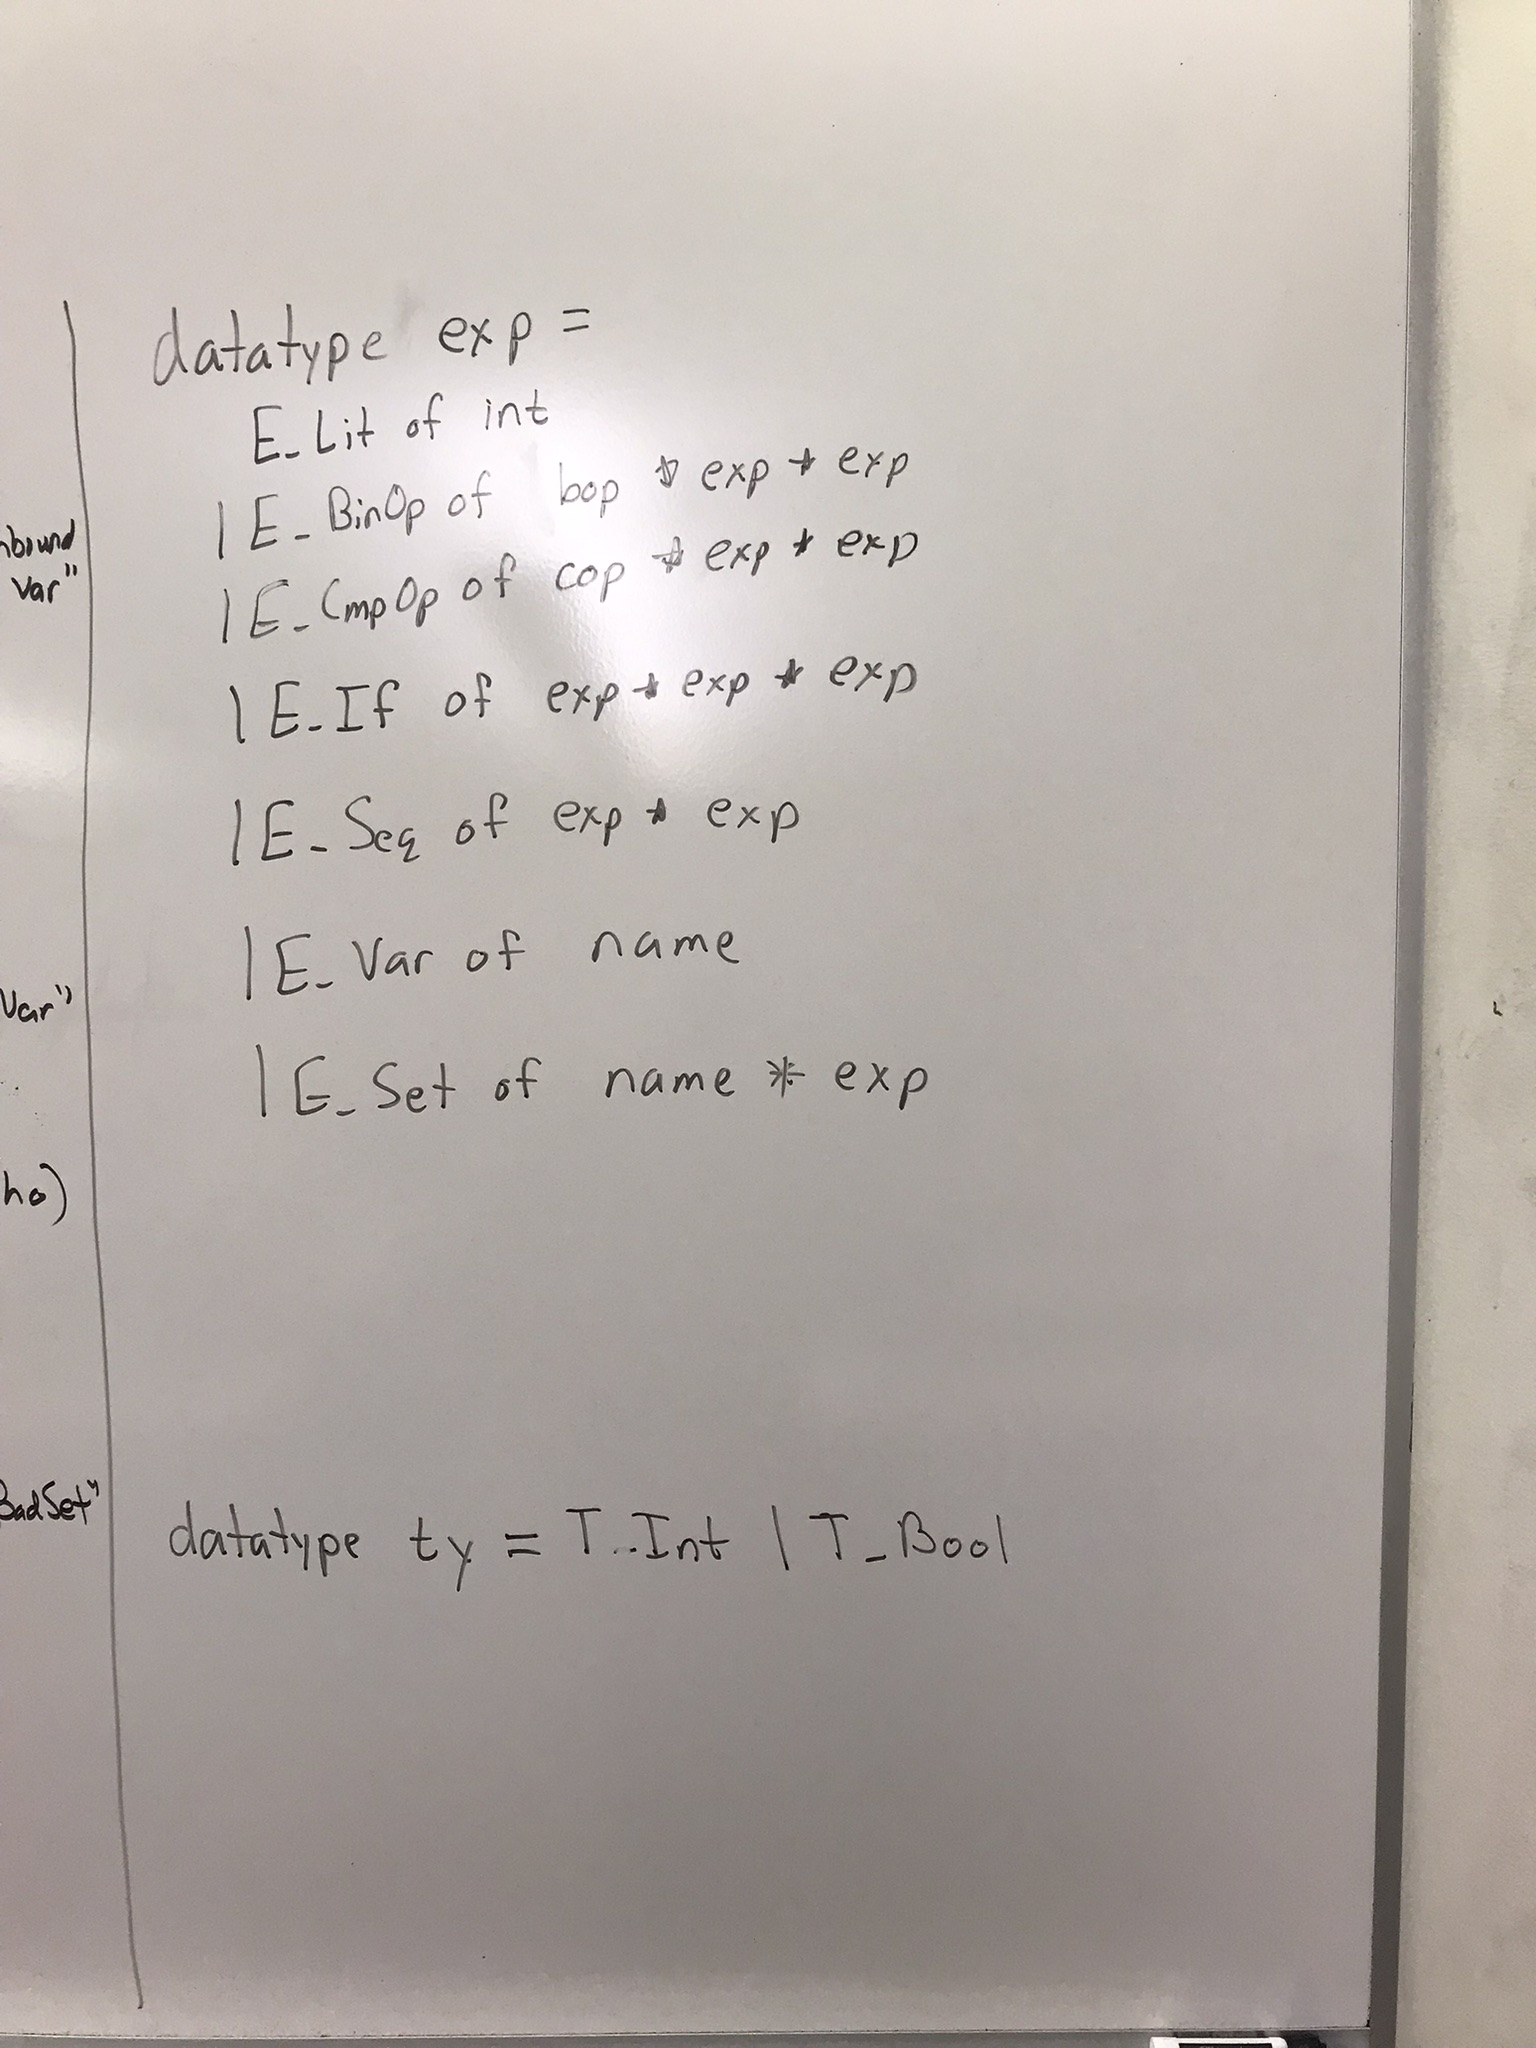 datatype exp =
E_Lit of int
| E_BinOp of bop * exp * exp
nbound
| E_CmpOp of cop * exp * exp
var"
| E_If of exp * exp * exp
| E_Seq of exp * exp
| E_Var of name
Var"
| E_Set of name * exp
ho)
BadSet"
datatype ty = T_Int | T_Bool